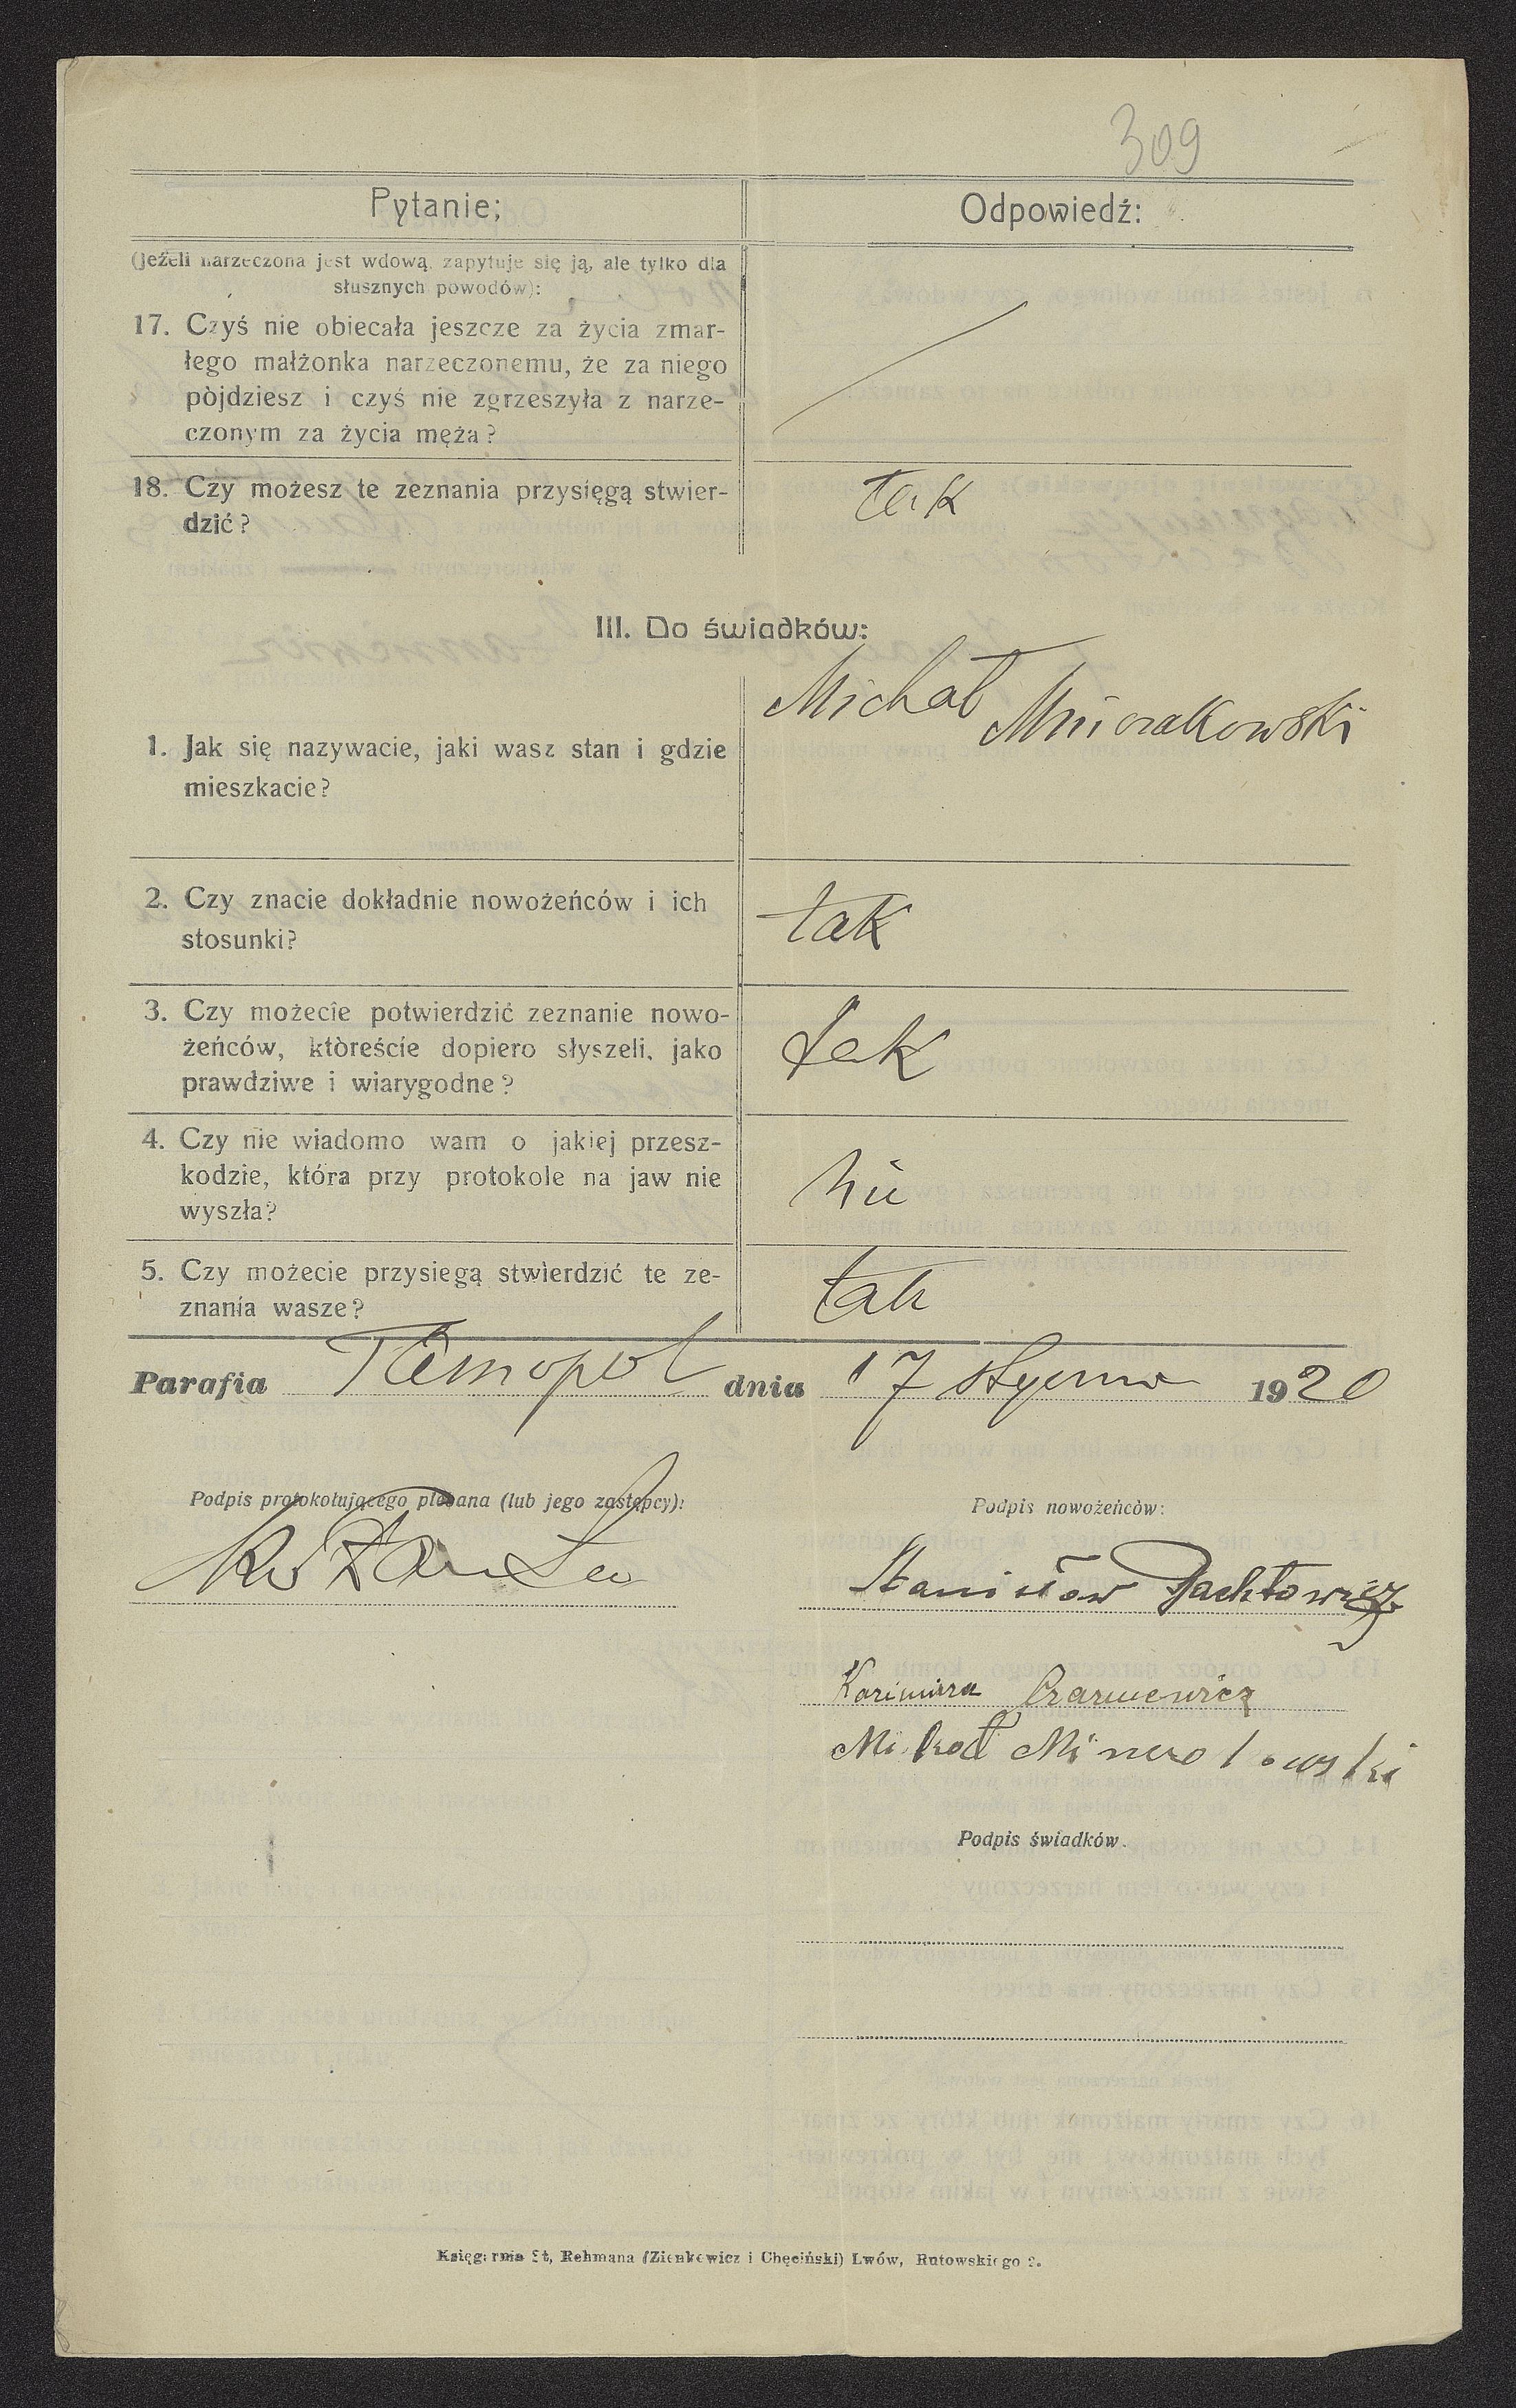 309
Pytanie;
Odpowiedź:
(Jeżeli narzeczona jest wdową, zapytuje się ją, ale tylko dla
słusznych powodów):
17. Czyś nie obiecała jeszcze za życia zmar-
łego małżonka narzeczonemu, że za niego
pòjdziesz i czyś nie zgrzeszyła z narze-
czonym za życia męża?
18. Czy możesz te zeznania przysięgą stwier-
dzić?
tak
III. Do świadków:
Michał
1. Jak się nazywacie, jaki wasz stan i gdzie
mieszkacie?
2. Czy znacie dokładnie nowożeńców i ich
stosunki?
tak
3. Czy możecie potwierdzić zeznanie nowo-
żeńców, któreście dopiero słyszeli, jako
prawdziwe i wiarygodne?
tak
4. Czy nie wiadomo wam o jakiej przesz-
kodzie, która przy protokole na jaw nie
wyszła?
nie
5. Czy możecie przysięgą stwierdzić te ze-
znania wasze?
tak
Parafia Tarnopol dnia 17 stycznia 1920
Podpis protokołującego plebana (lub jego zastępcy):
Podpis nowożeńców:
Stanisław Pachtowicz
Kazimiera Czarniewicz
Podpis świadków.
Księgarnia St, Rehmana (Zienkewicz i Chęciński) Lwów, Rutowskiego 2.